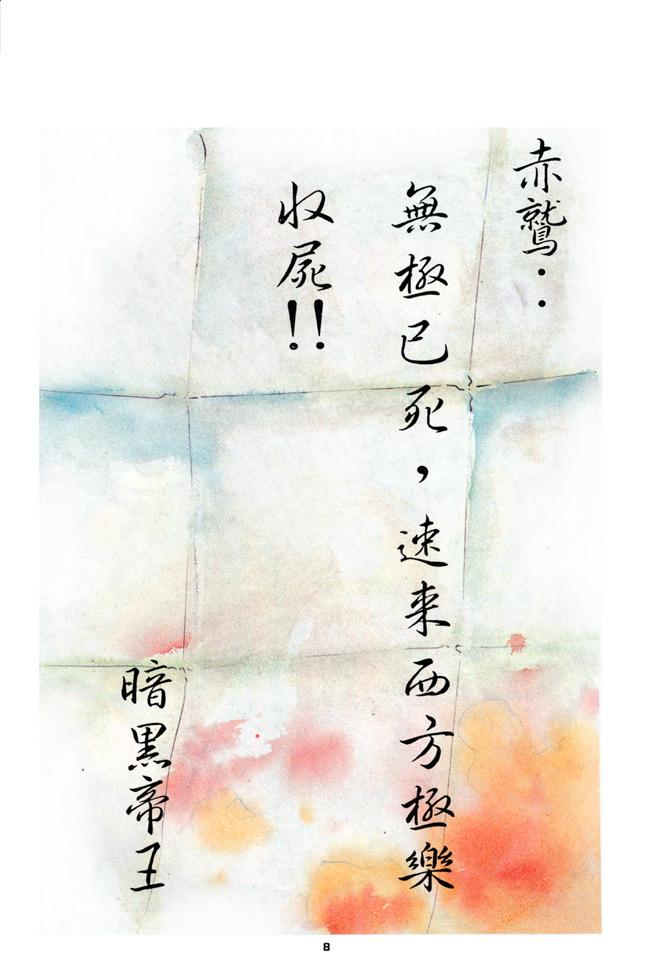 赤鷲：
無極已死，速来西方極樂
収屍!!
暗黒帝王
8